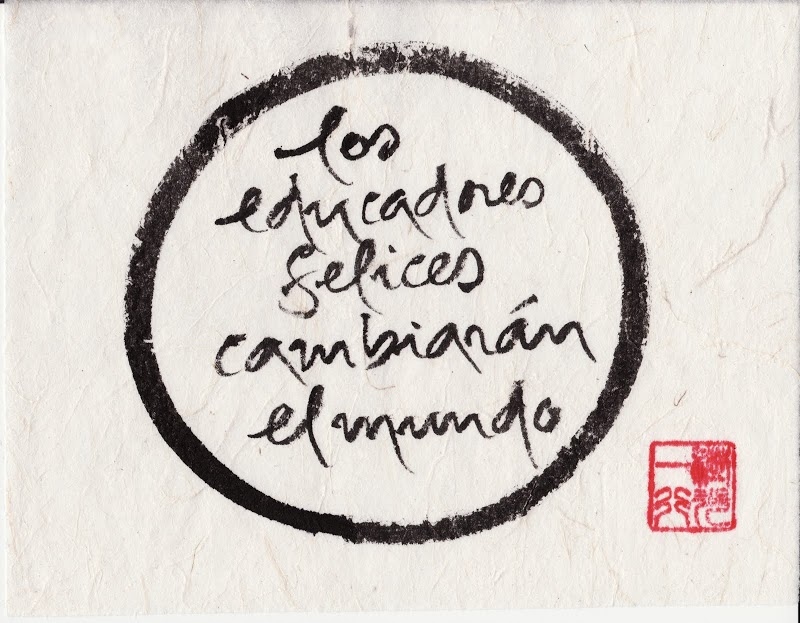 los
educadores
felices
cambiarán
el mundo